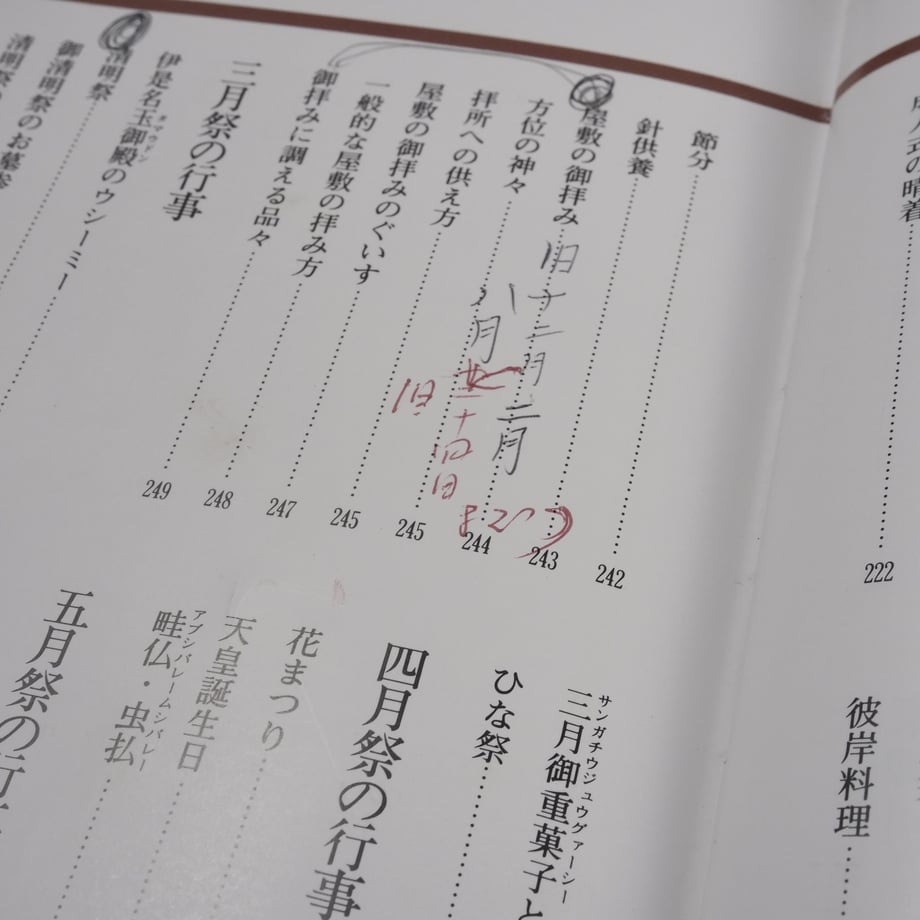 の晴着
222
彼岸料理
節分
242
針供養
屋敷の御拝み
243
方位の神々
244
拝所への供え方
245
屋敷の御拝みのぐいす
245
一般的な屋敷の拝み方
247
御拝みに調える品々
248
三月祭の行事
249
伊是名玉御殿のウシーミー
タマウドゥン
清明祭
御清明祭
清明祭のお墓参
旧
十二月二月
八月
旧
二十四日
まで
三月御重菓子と
サンガチウジュウグァーシー
ひな祭
四月祭の行事
花まつり
天皇誕生日
畦仏・虫払
アブシバレームシバレー
五月祭の行